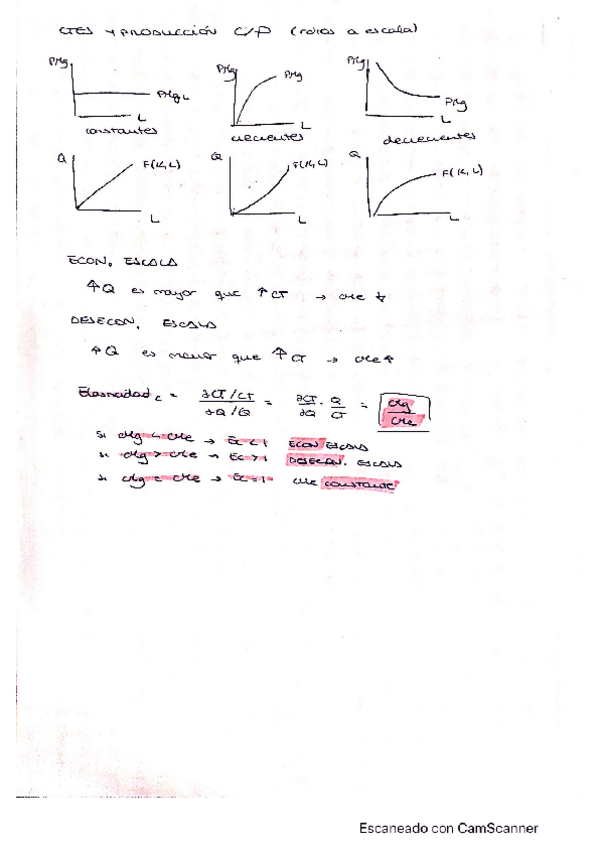 CTES y PRODUCCIÓN C/P (rdtos a escala)
PMg PMg PMg
PMg L PMg PMg
L L L
constantes crecientes decrecientes
Q Q Q
F(K,L) F(K,L) F(K,L)
L L L
ECON. ESCALA
↑Q es mayor que ↑CT → CMe ↓
DESECON. ESCALA
↑Q es menor que ↑CT → CMe ↑
Elasticidad c = ∂CT/CT / ∂Q/Q = ∂CT/∂Q · Q/CT = CMg/CMe
Si CMg < CMe → Ec < 1 ECON ESCALA
Si CMg > CMe → Ec > 1 DESECON. ESCALA
Si CMg = CMe → Ec = 1 CMe constante
Escaneado con CamScanner